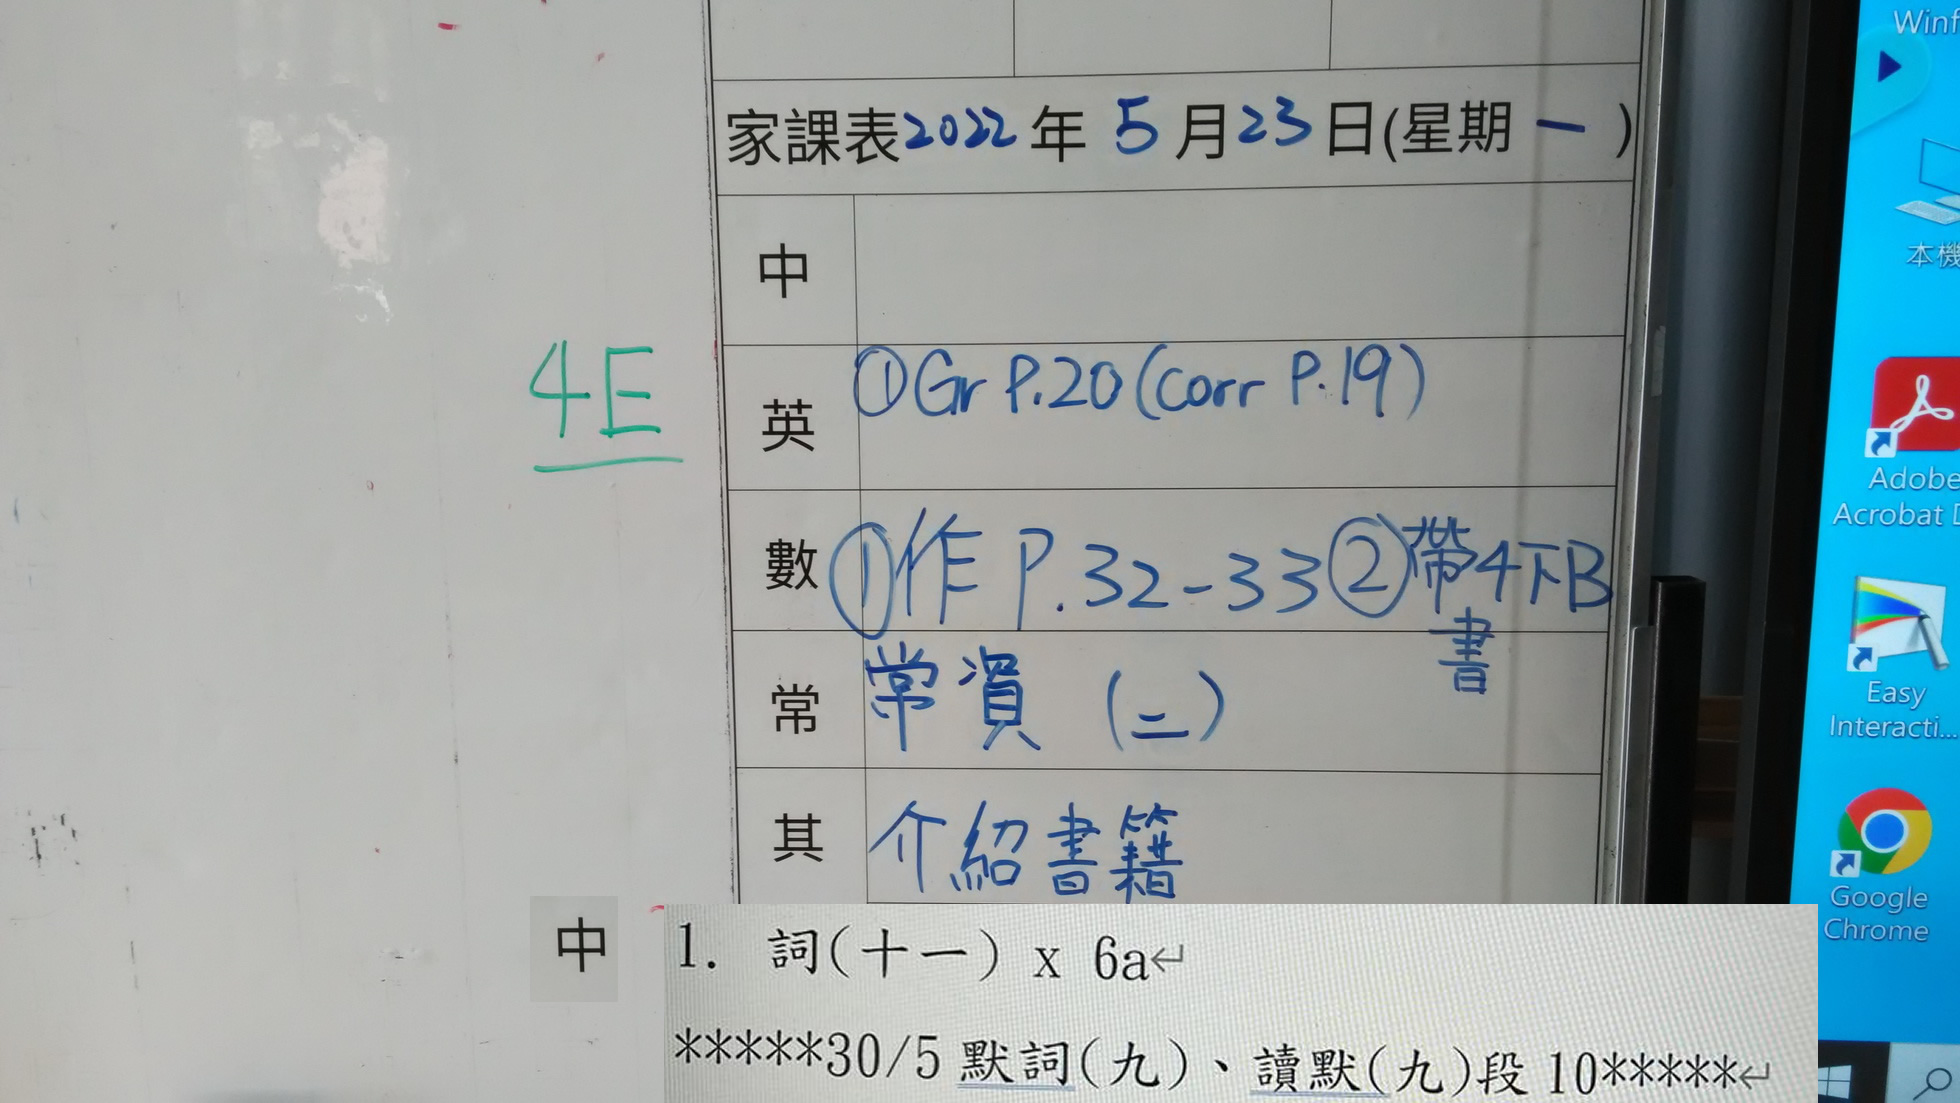 家課表2022年 5月23日(星期一)
中
4E
英 ①Gr P.20(corr P.19)
數 ①作 P.32-33②帶4下B
書
常 常資 (二)
其 介紹書籍
中 1. 詞(十一) x 6a↵
*****30/5 默詞(九)、讀默(九)段 10*****↵
Winf
本機
Adobe
Acrobat D
Easy
Interacti...
Google
Chrome